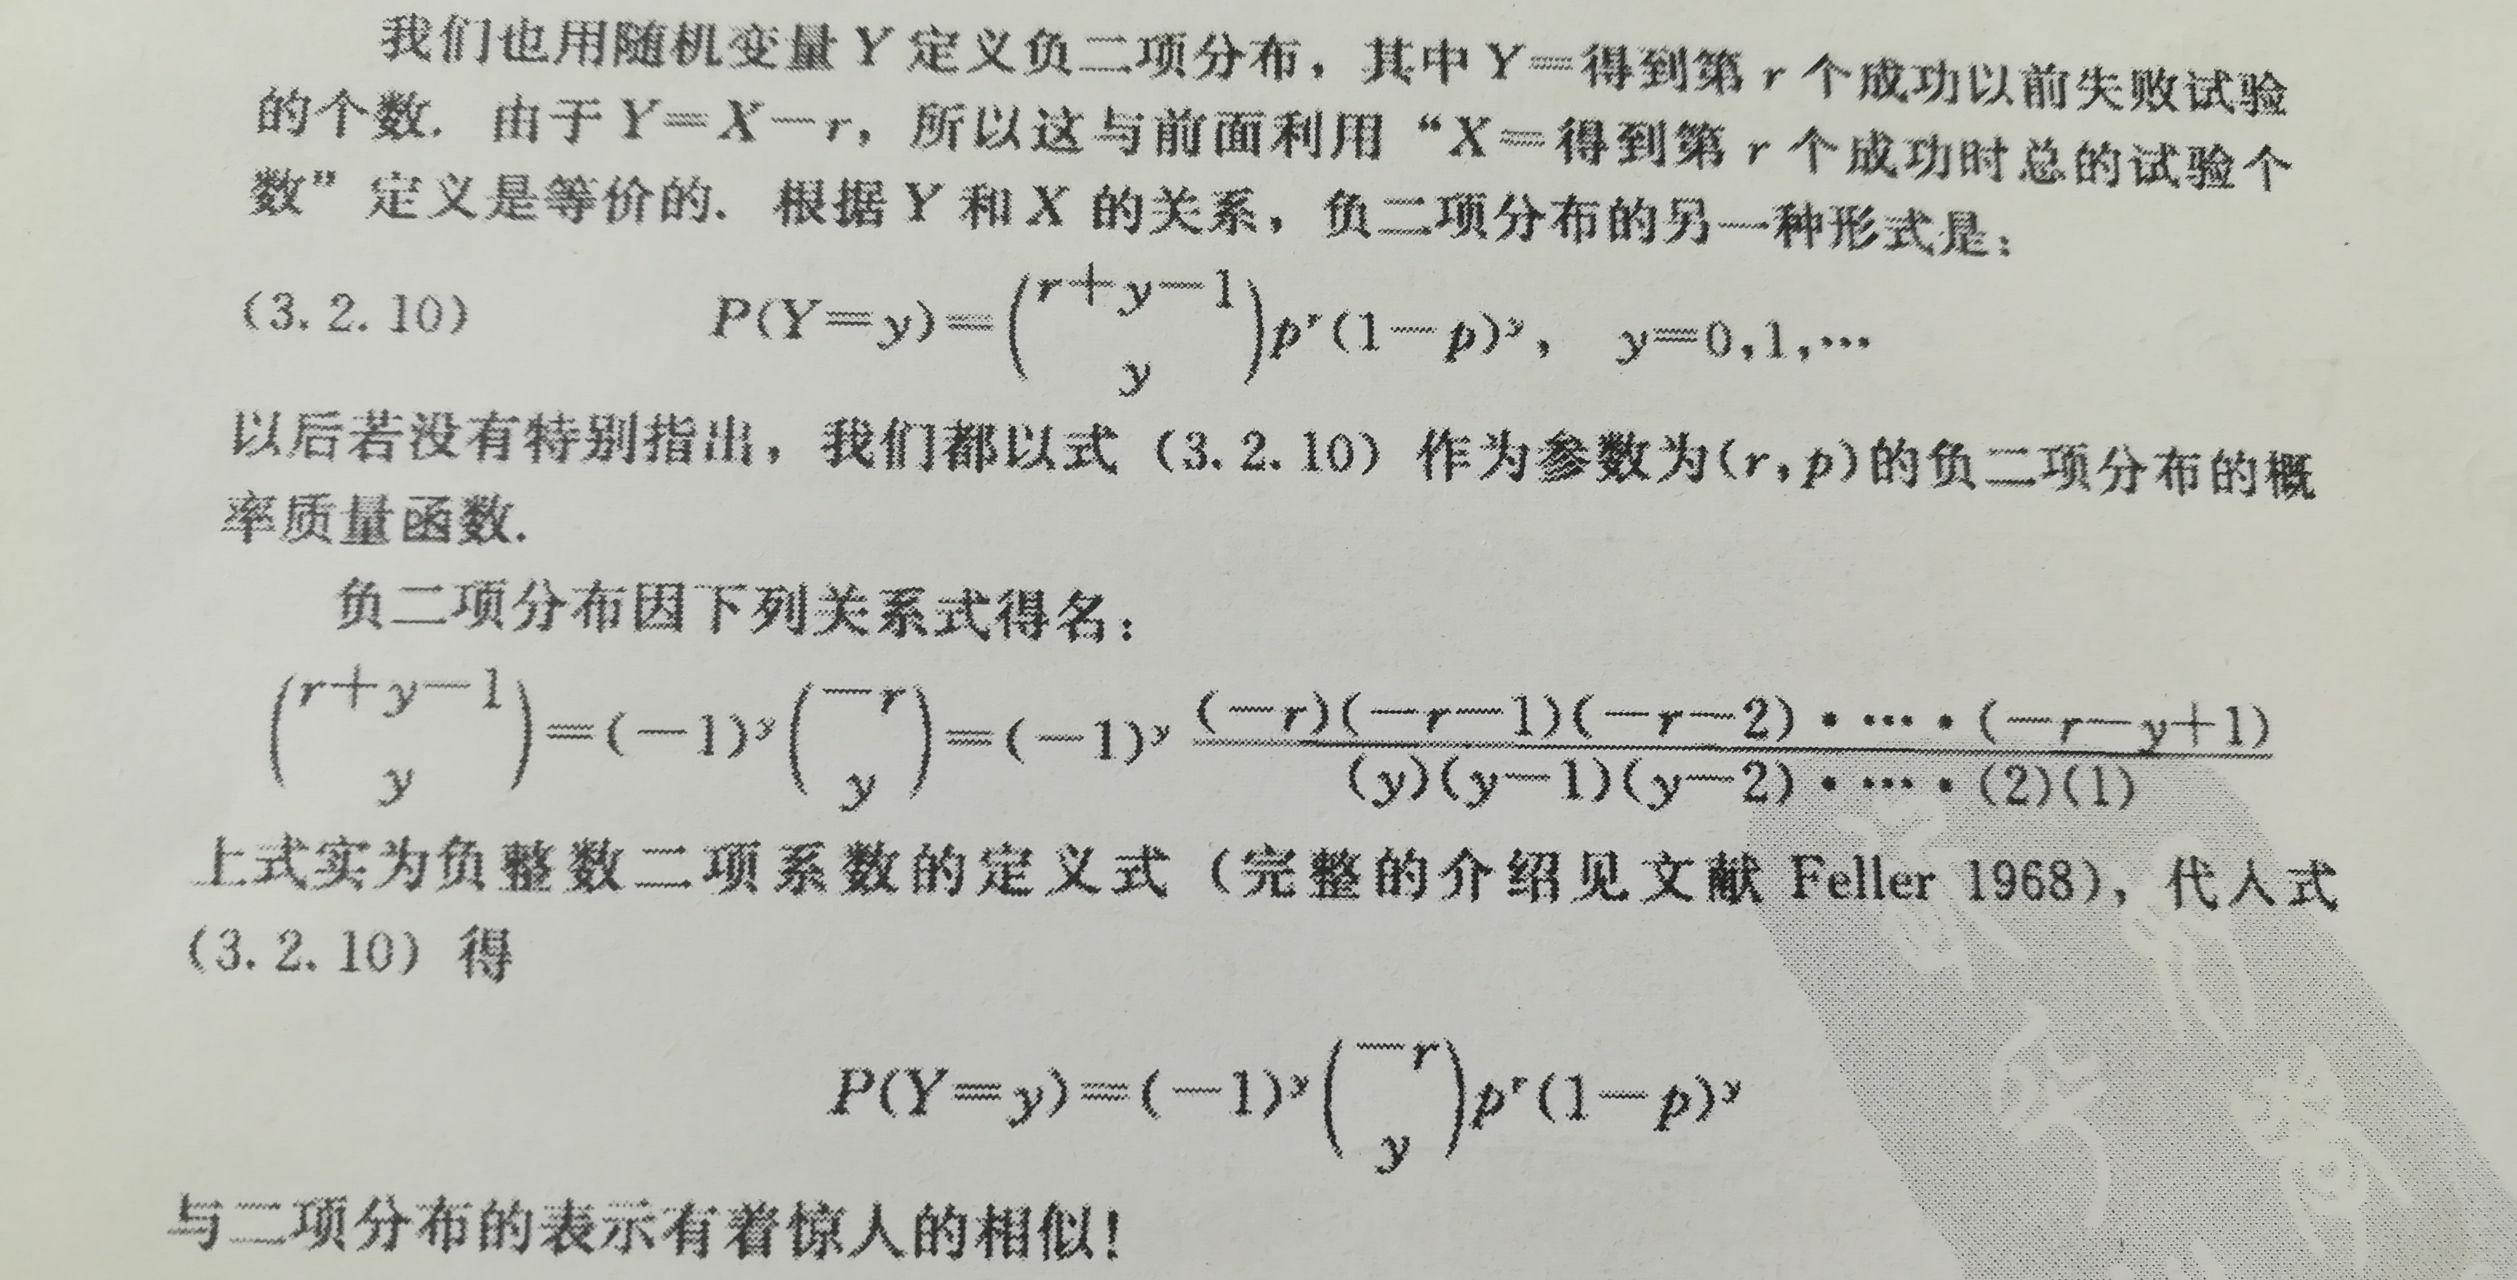 我们也用随机变量Y定义负二项分布，其中Y=得到第r个成功以前失败试验
的个数. 由于Y=X-r，所以这与前面利用“X=得到第r个成功时总的试验个
数”定义是等价的. 根据Y和X的关系，负二项分布的另一种形式是：
(3.2.10) P(Y=y)=\binom{r+y-1}{y}p^r(1-p)^y, y=0,1,…
以后若没有特别指出，我们都以式（3.2.10）作为参数为(r,p)的负二项分布的概
率质量函数.
负二项分布因下列关系式得名：
\binom{r+y-1}{y}=(-1)^y\binom{-r}{y}=(-1)^y\frac{(-r)(-r-1)(-r-2)·…·(-r-y+1)}{(y)(y-1)(y-2)·…·(2)(1)}
上式实为负整数二项系数的定义式（完整的介绍见文献 Feller 1968），代人式
（3.2.10）得
P(Y=y)=(-1)^y\binom{-r}{y}p^r(1-p)^y
与二项分布的表示有着惊人的相似！